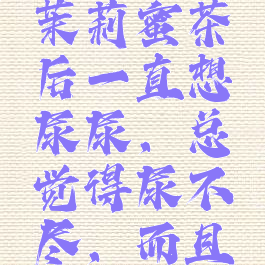 茉莉蜜茶
后一直想
尿尿，总
觉得尿不
尽，而且